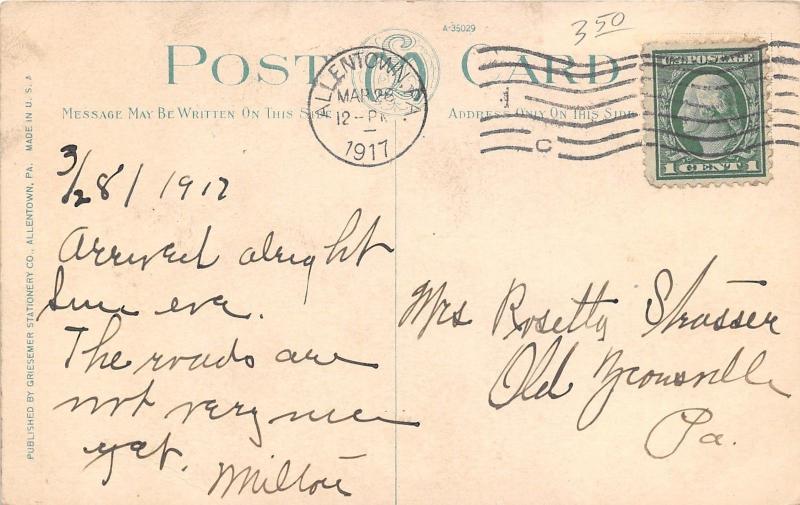 A-35029
350
POST CARD
ALLENTOWN, PA
MAR 28
12-PM
1917
1
C
U.S. POSTAGE
1 CENT 1
MESSAGE MAY BE WRITTEN ON THIS SIDE
ADDRESS ONLY ON THIS SIDE
PUBLISHED BY GRIESEMER STATIONERY CO., ALLENTOWN, PA. MADE IN U.S.A
3/28/1917
Arrived alright
Sun eve.
The roads are
not very nice
yet.
Milton
Mrs Rosetta Strasser
Old Zionsville
Pa.